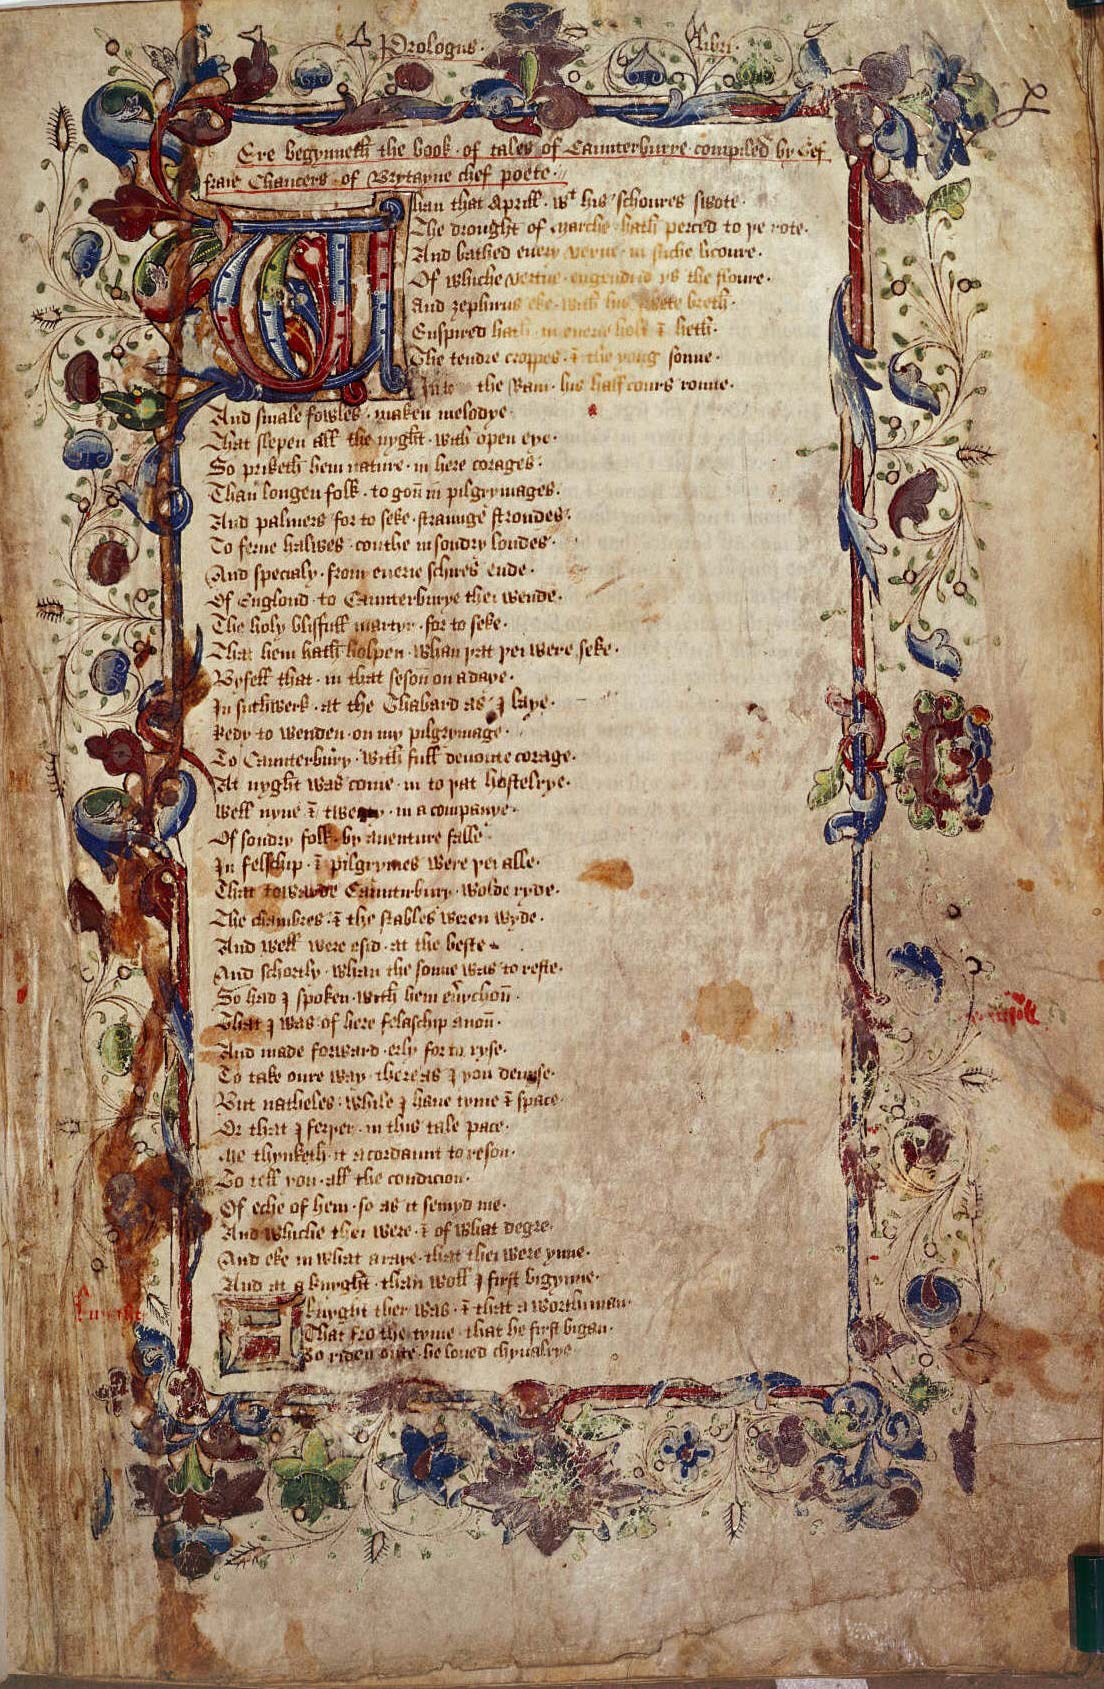 Prologus · libri ·
Ere begynneth the book · of tales of Caunterburye · compiled by Gef
fraie Chaucers · of Brytayne chef poete ·
Whan that Aprill · wt his schoures swote ·
The drought of marche · hath perced to þe rote ·
And bathed euery veyne · in suche licoure ·
Of whiche vertue · engendrid ys the floure ·
And zephirus eke · with his swete breth ·
Enspired hath · in euerie holt & heth ·
The tendre croppes · & the yong sonne ·
In the Ram · his half cours ronne ·
And smale fowles · maken melodye ·
That slepen all the nyght · with open eye ·
So priketh hem nature · in here corages ·
Than longen folk · to gon in pilgrymages ·
And palmers for to seke · straunge strondes ·
To ferne halwes · couthe in sondry londes ·
And specialy · from euerie schires ende ·
Of Englond · to Caunterburye thei wende ·
The holy blisfull martyr · for to seke ·
That hem hath holpen · whan þat þei were seke ·
Byfell that · in that seson on a daye ·
In suthwerk · at the Thabard as I laye ·
Redy to wenden · on my pilgrymage ·
To Caunterbury · with full deuoute corage ·
At nyght was come · in to þat hostelrye ·
Well nyne & twenty · in a companye ·
Of sondry folk · by auenture falle
In felschip · & pilgrymes were þei alle ·
That towarde Caunturbury · wolde ryde ·
The chambres · & the stables weren wyde ·
And well were esid · at the beste
And schortly · whan the sonne was to reste ·
So had I spoken · with hem eu'ychon ·
That I was of here felaschip anon ·
And made forward · erly for to ryse ·
To take oure way · there as I you deuyse ·
But natheles · while I haue tyme & space ·
Or that I ferþer · in this tale pace ·
Me thynketh it acordaunt to reson ·
To tell you · all the condicion ·
Of eche of hem · so as it semyd me ·
And whiche thei were · & of what degre ·
And eke in what araye · that thei were ynne ·
And at a knyght · than woll I first bigynne ·
A knyght ther was · & that a worthi man ·
That fro the tyme · that he first bigan ·
To riden oute · he loued chyualrye